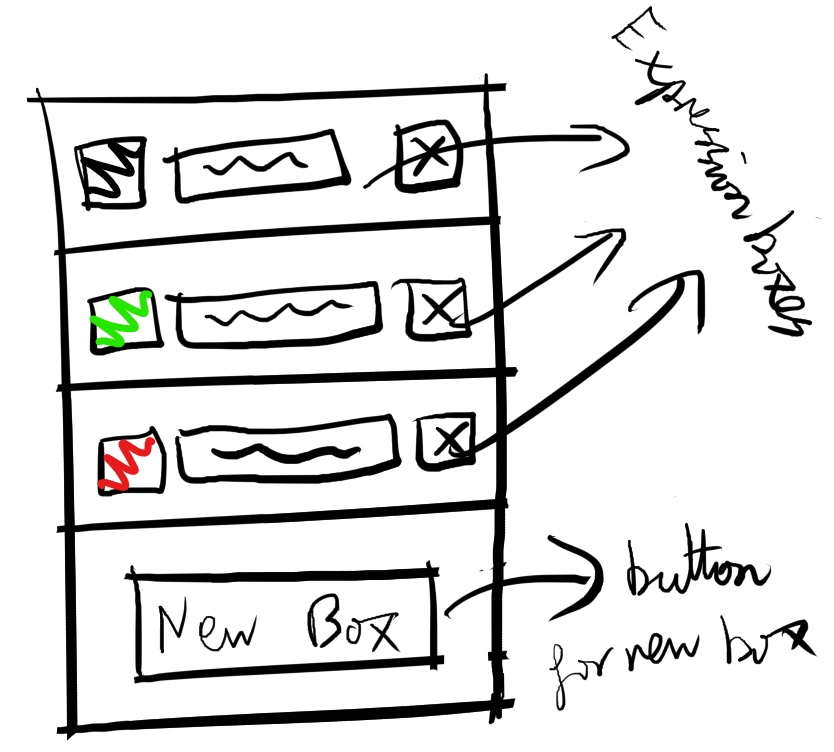 Expression boxes
New Box
button
for new box